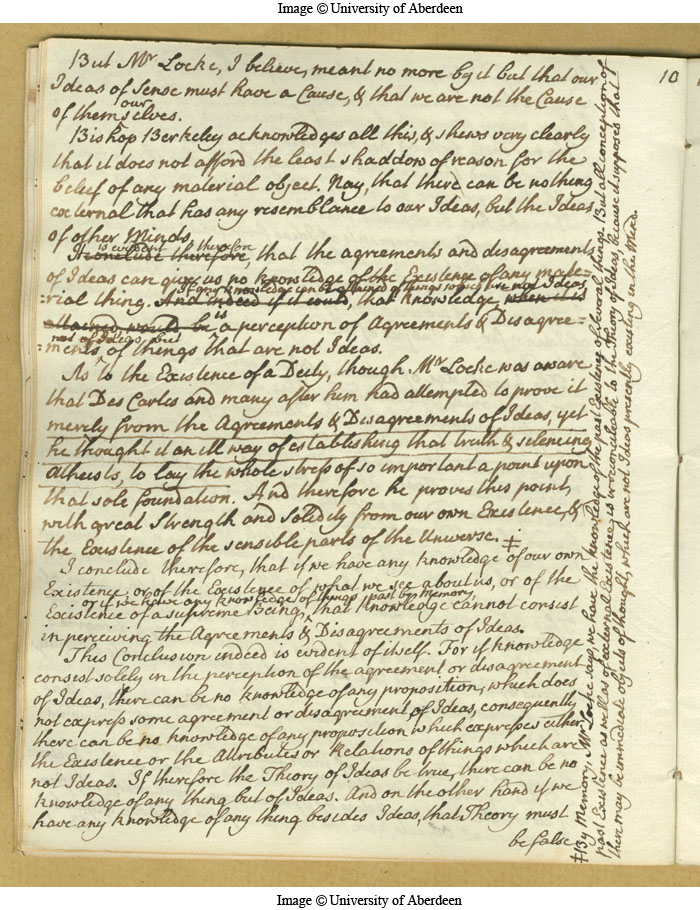 Image © University of Aberdeen
But Mr Locke, I believe, meant no more by it but that our
Ideas of Sense must have a Cause, & that we are not the Cause
our
of themselves.
Bishop Berkeley acknowledges all this, & shews very clearly
that it does not afford the least shaddow of reason for the
belief of any material object. Nay, that there can be nothing
external that has any resemblance to our Ideas, but the Ideas
of other Minds.
is evident therefore
It conclude therefore, that the agreements and disagreements
of Ideas can give us no knowledge of the Existence of any mate=
If any knowledge can be attained of things which are not Ideas,
=rial thing. And indeed if it could, that knowledge when it is
is
attained would be a perception of Agreements & Disagree=
not of Ideas, but
=ments of things that are not Ideas.
As to the Existence of a Deity, though Mr Locke was aware
that Des Cartes and many after him had attempted to prove it
merely from the Agreements & Disagreements of Ideas, yet
he thought it an ill way of establishing that truth & silencing
Atheists, to lay the whole stress of so important a point upon
that sole foundation. And therefore he proves this point,
with great Strength and Solidity from our own Existence, &
the Existence of the sensible parts of the Universe. ‡
I conclude therefore, that if we have any knowledge of our own
Existence, or of the Existence of what we see about us, or of the
or if we have any knowledge of things past by memory,
Existence of a supreme Being, that Knowledge cannot consist
in perceiving the Agreements & Disagreements of Ideas.
This Conclusion indeed is evident of itself. For if knowledge
consist solely in the perception of the agreement or disagreement
of Ideas, there can be no knowledge of any proposition, which does
not express some agreement or disagreement of Ideas, consequently
there can be no knowledge of any proposition which expresses either
the Existence or the Attributes or Relations of things which are
not Ideas. If therefore the Theory of Ideas be true, there can be no
knowledge of any thing but of Ideas. And on the other hand if we
have any knowledge of any thing besides Ideas, that Theory must
be false
‡ By Memory, Mr Locke says, we have the knowledge of the past Existence of several things. But all conception of
past Existence as well as of external Existence, is irreconcileable to the Theory of Ideas, because it supposes that
there may be immediate objects of thought, which are not Ideas presently existing in the Mind.
10
Image © University of Aberdeen